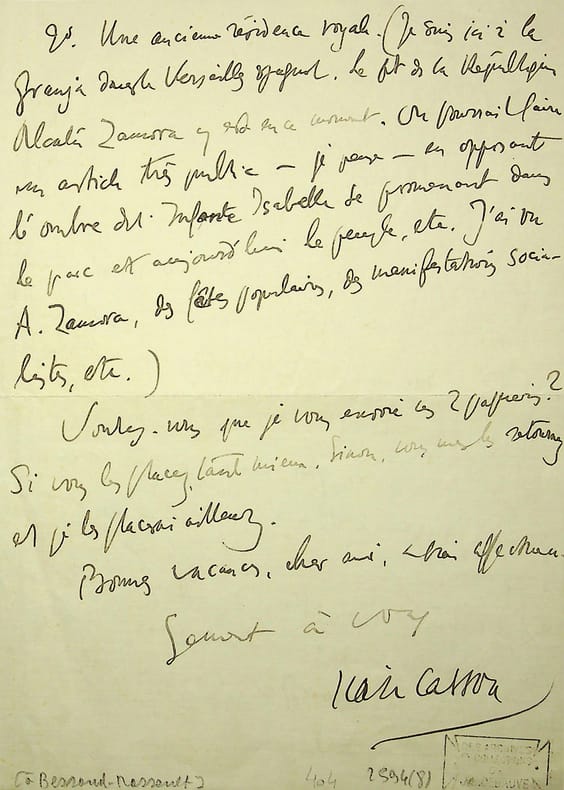 2°. Une ancienne résidence royale. (Je suis ici à la
Granja dans le Versailles espagnol. Le pt de la République
Alcalá Zamora y est en ce moment. On pourrait faire
un article très public — je pense — en opposant
l'ombre de l'Infante Isabelle se promenant dans
le parc et aujourd'hui le peuple, etc. J'ai vu
A. Zamora, des fêtes populaires, des manifestations socia-
listes, etc.)
Voulez-vous que je vous envoie ces 2 papiers ?
Si vous les placez, tant mieux. Sinon, vous me les retournez
et je les placerai ailleurs.
Bonnes vacances, cher ami, et bien affectueu-
sement à vous
Jean Cassou
[à Bessand-Massenet]
404 2594(8)